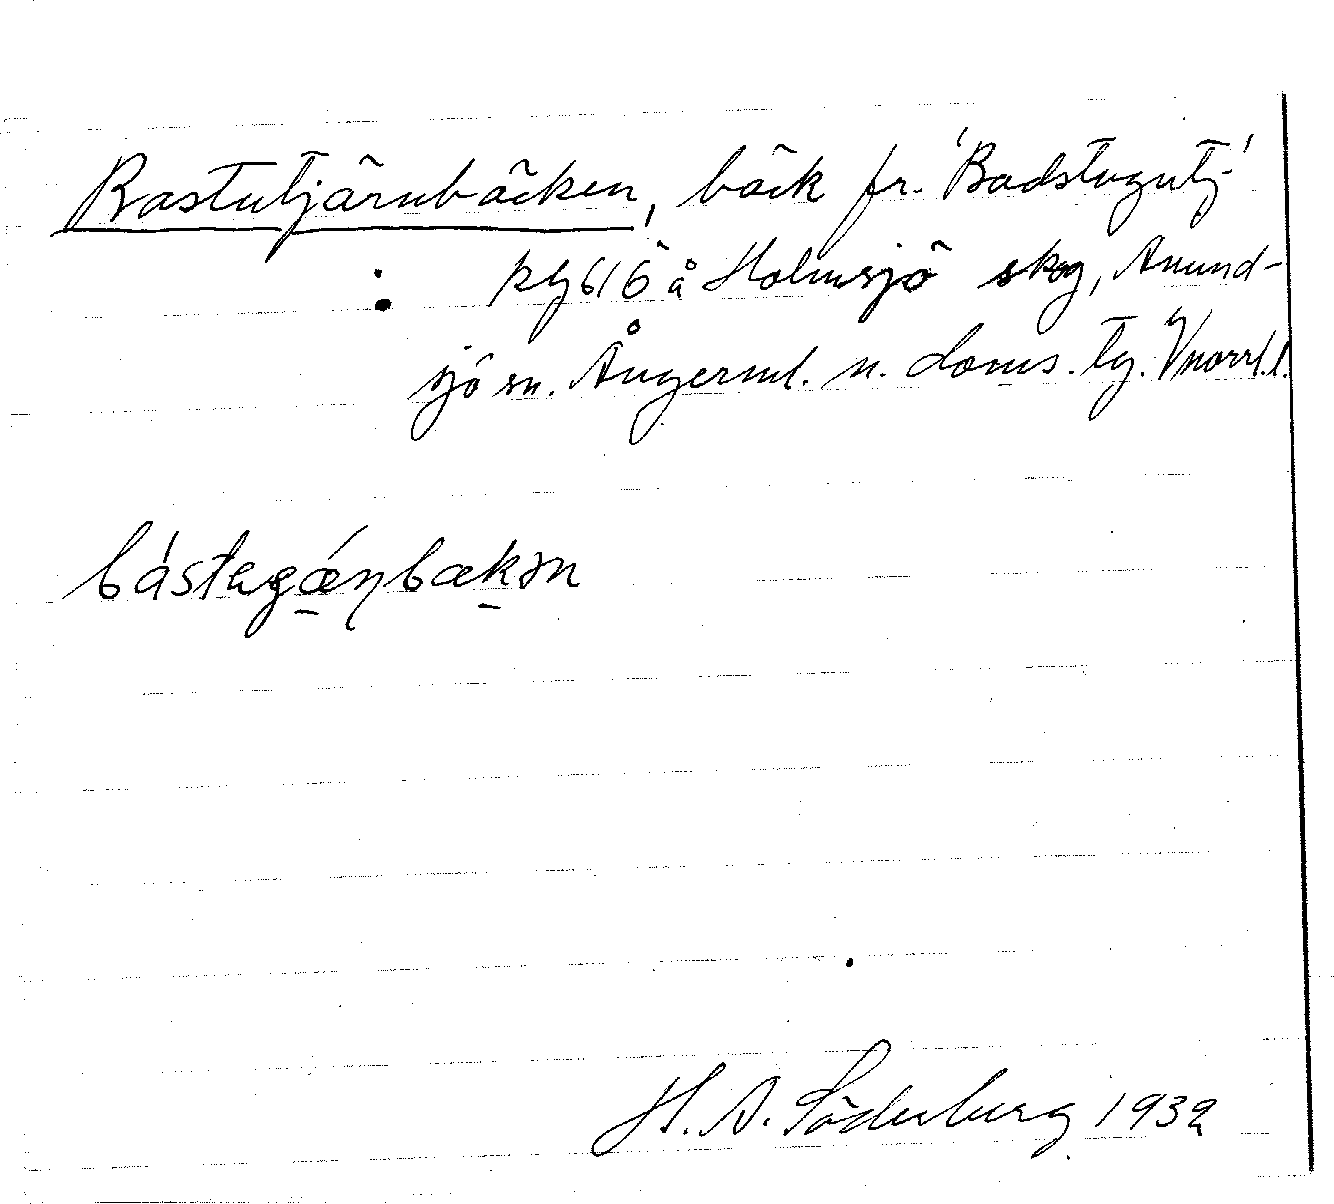 Bastutjärnbäcken, bäck fr. 'Badstugutj.'
å Holmsjö skog, Anund-
sjö sn. Ångerml. n. doms. tg. Vnorrl. l.
H. A. Söderberg 1932